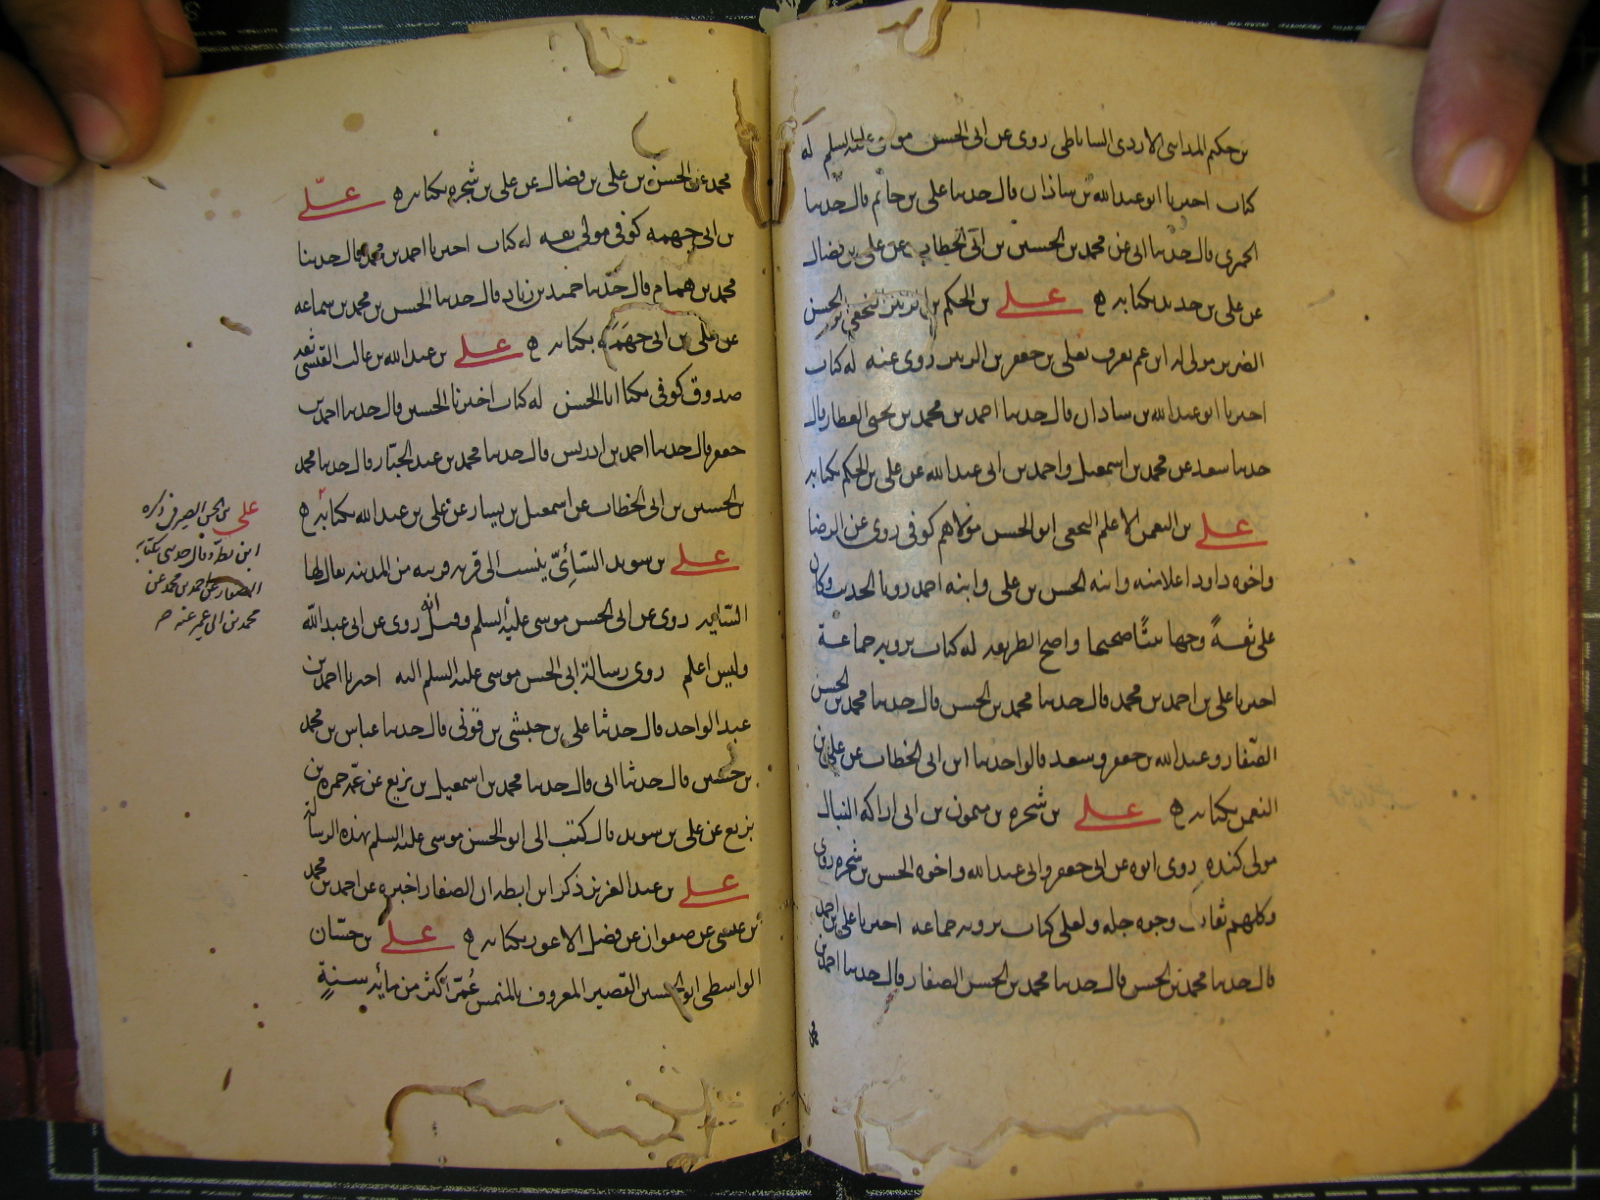 بن حكيم المدائني الازدي الساباطي روى عن ابي الحسن موسى عليه السلم له
كتاب اخبرنا ابو عبد الله بن شاذان قال حدثنا علي بن حاتم قال حدثنا
الحميري قال حدثنا ابي عن محمد بن الحسين بن ابي الخطاب عن علي بن فضال
عن علي بن حديد بكتابه ه علي بن الحكم بن الزبير النخعي ابو الحسن
الضرير مولى له ابن عم يعرف بعلي بن جعفر بن الزبير روى عنه له كتاب
اخبرنا ابو عبد الله بن شاذان قال حدثنا احمد بن محمد بن يحيى العطار قال
حدثنا سعد عن محمد بن اسمعيل واحمد بن ابي عبد الله عن علي بن الحكم بكتابه
علي بن النعمن الاعلم النخعي ابو الحسن مولاهم كوفي روى عن الرضا
واخوه داود اعلا منه وابنه الحسن بن علي وابنه احمد رويا الحديث وكان
علي ثقةً وجها ثبتًا صحيحا واضح الطريقه له كتاب يرويه جماعة
اخبرنا علي بن احمد بن محمد قال حدثنا محمد بن الحسن قال حدثنا محمد بن الحسن
الصفار وعبد الله بن جعفر وسعد قالوا حدثنا ابن ابي الخطاب عن علي بن
النعمن بكتابه ه علي بن شجره بن ميمون بن ابي اراكه النبال
مولى كنده روى ابوه عن ابي جعفر وابي عبد الله واخوه الحسن بن شجره روى
وكلهم ثقات وجوه جله ولعلي كتاب يرويه جماعه اخبرنا علي بن احمد
قال حدثنا محمد بن الحسن قال حدثنا محمد بن الحسن الصفار قال حدثنا احمد بن
محمد عن الحسن بن علي بن فضال عن علي بن شجره بكتابه ه علي
بن ابي جهمه كوفي مولى ثقه له كتاب اخبرنا احمد بن محمد قال حدثنا
محمد بن همام قال حدثنا حميد بن زياد قال حدثنا الحسن بن محمد بن سماعه
عن علي بن ابي جهمه بكتابه ه علي بن عبد الله بن غالب القيسي ثقه
صدوق كوفي يكنا ابا الحسن له كتاب اخبرنا الحسين قال حدثنا احمد بن
جعفر قال حدثنا احمد بن ادريس قال حدثنا محمد بن عبد الجبار قال حدثنا محمد
بن الحسين بن ابي الخطاب عن اسمعيل بن يسار عن علي بن عبد الله بكتابه ه
علي بن سويد السائيّ ينسب الى قريه قريبه من المدينه يقال لها
السايه روى عن ابي الحسن موسى عليه السلم وقيل انه روى عن ابي عبد الله
وليس اعلم روى رسالة ابي الحسن موسى عليه السلم اليه اخبرنا احمد بن
عبد الواحد قال حدثنا علي بن حبشي بن قوني قال حدثنا عباس بن محمد
بن حسين قال حدثنا ابي قال حدثنا محمد بن اسمعيل بن بزيع عن عمّه حمزه بن
بزيع عن علي بن سويد قال كتب الي ابو الحسن موسى عليه السلم بهذه الرساله
علي بن عبد العزيز ذكر ابن بطه ان الصفار اخبره عن احمد بن محمد
بن عيسى عن صفوان عن فضيل الاعور بكتابه ه علي بن حسّان
الواسطي ابو الحسين القصير المعروف بالمنمس عُمِّر اكثر من مائه سنةٍ
علي بن الحسن الصيرفي ذكره
ابن بطه وقال حدثني بكتابه
الصفار عن احمد بن محمد عن
محمد بن ابي عمير عنه